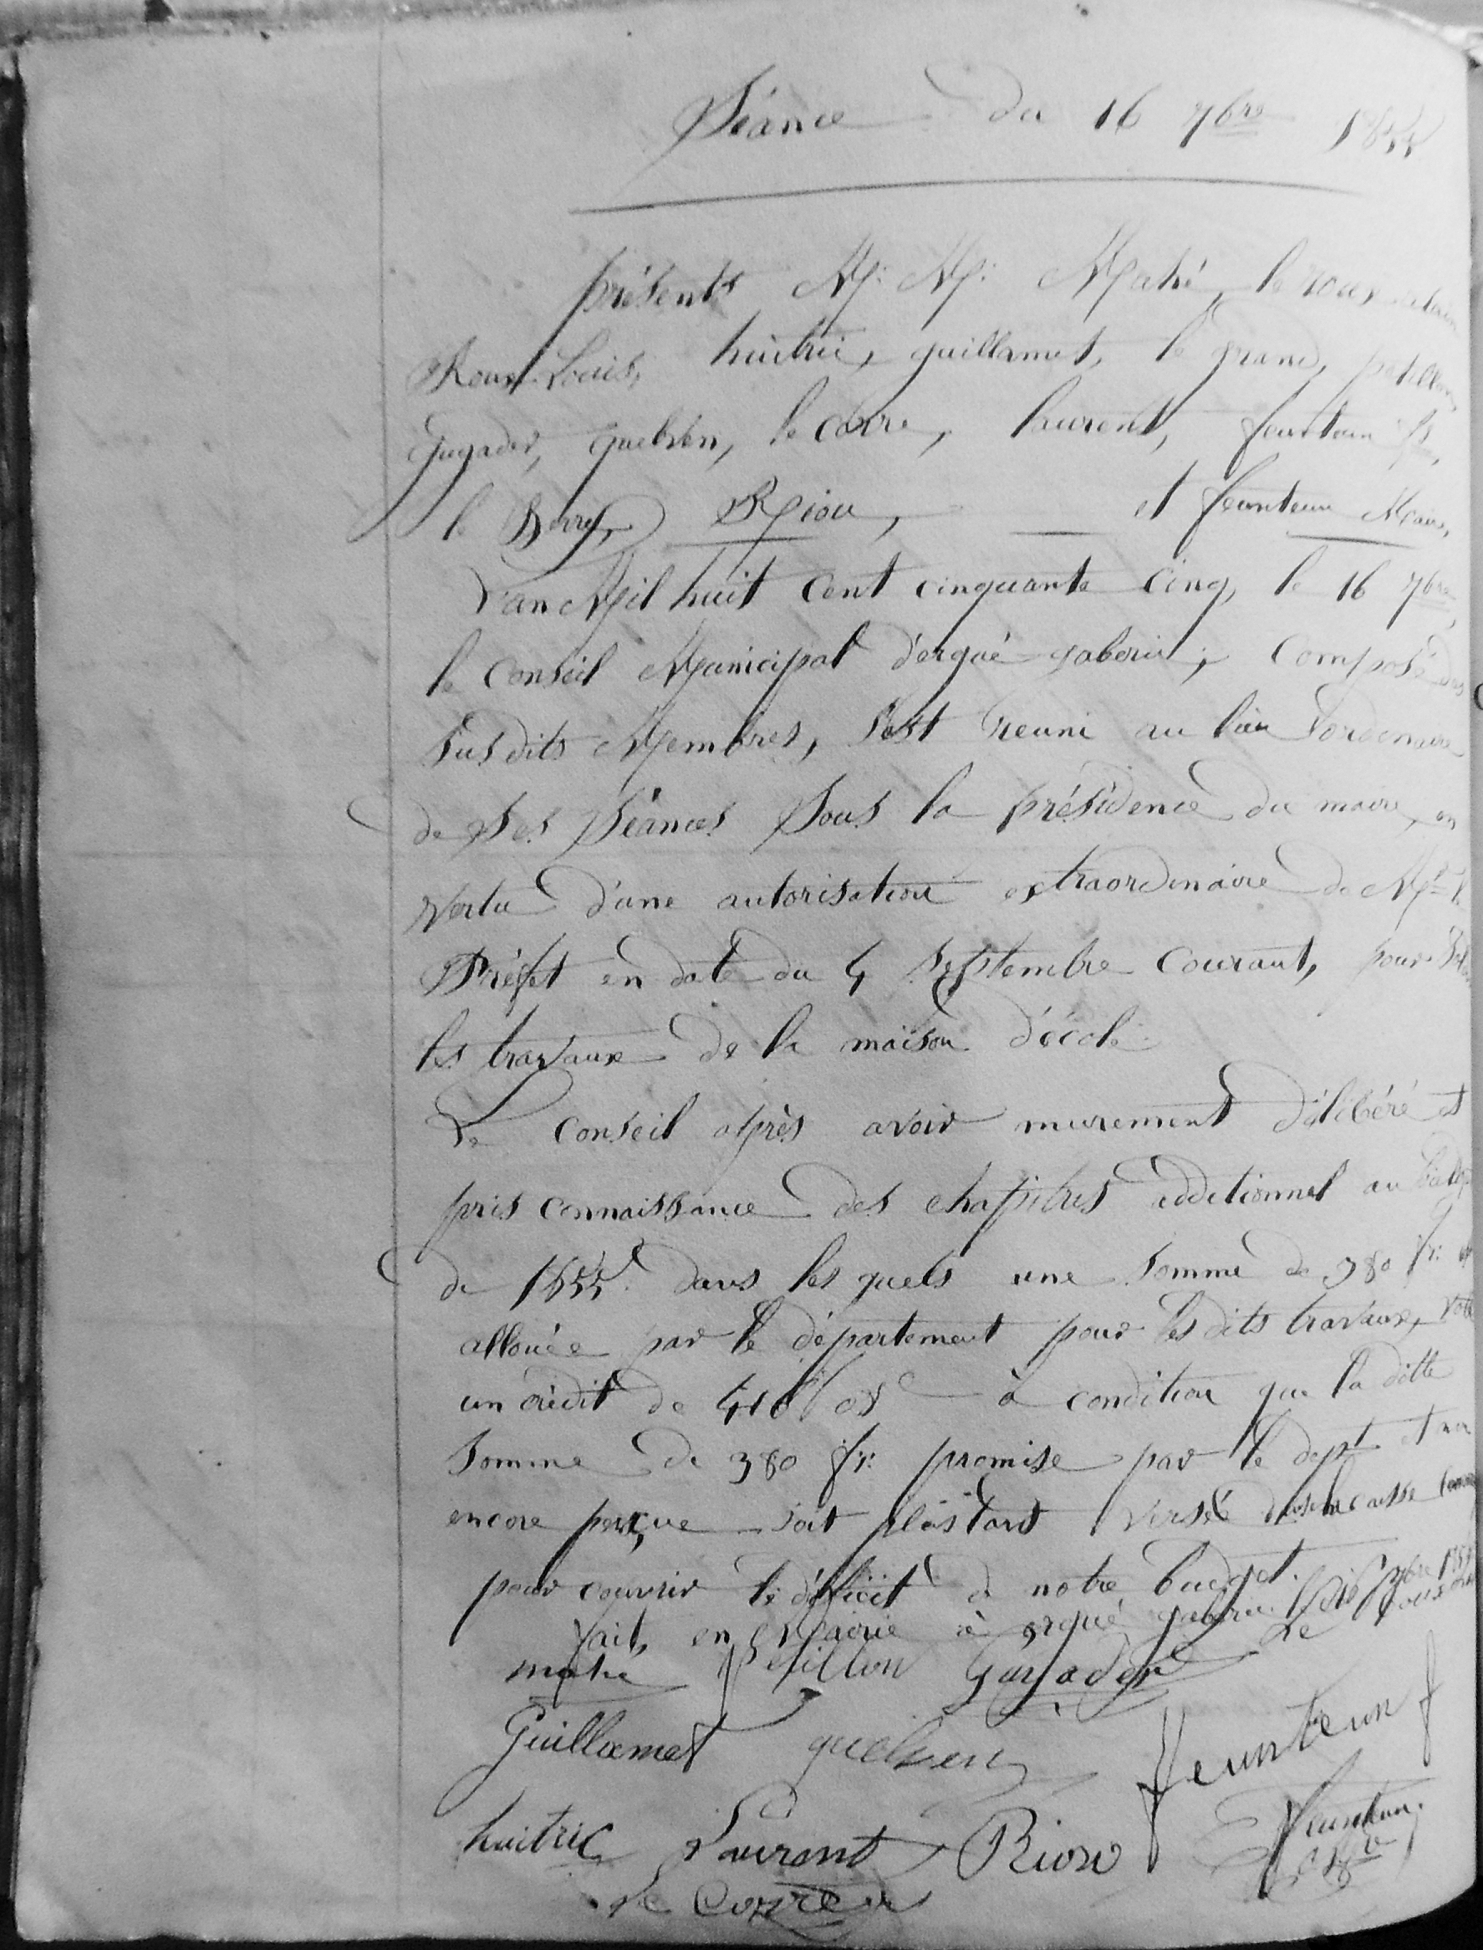 Séance du 16 7bre 1855
présents M. M. Mahé, le roux alain
Roux Louis, huitric, guillamet, le grand, petillon
Gugader, quelven, le corre, laurent, feunteun
le Berre, Riou, et feunteun Maire,
L'an Mil huit Cent cinquante Cinq, le 16 7bre
le Conseil Municipal d'ergué-gaberic, Composé des
Susdits Membres, S'est reuni au lieu ordinaire
de Ses Séances Sous la présidence du maire, en
Vertu d'une autorisation extraordinaire de Mr le
Préfet en date du 4 Septembre Courant, pour
les travaux de la maison d'école.
Le Conseil après avoir murement délibéré et
pris connaissance des chapitres additionnel au budget
de 1855 dans les quels une Somme de 380 fr.
allouée par le département pour les dits travaux, vote
un crédit de 416f 08c à condition que la ditte
Somme de 380 fr. promise par le dept et non
encore perçue soit plus tard versée dans la caisse
pour couvrir le déficit à notre budget.
fait, en Mairie à ergué gaberic le 16 7bre 1855
mahé Petillon Gugader Le roux
Guillamet quelven feunteun
huitric Laurent Riou feunteun
Le Corre